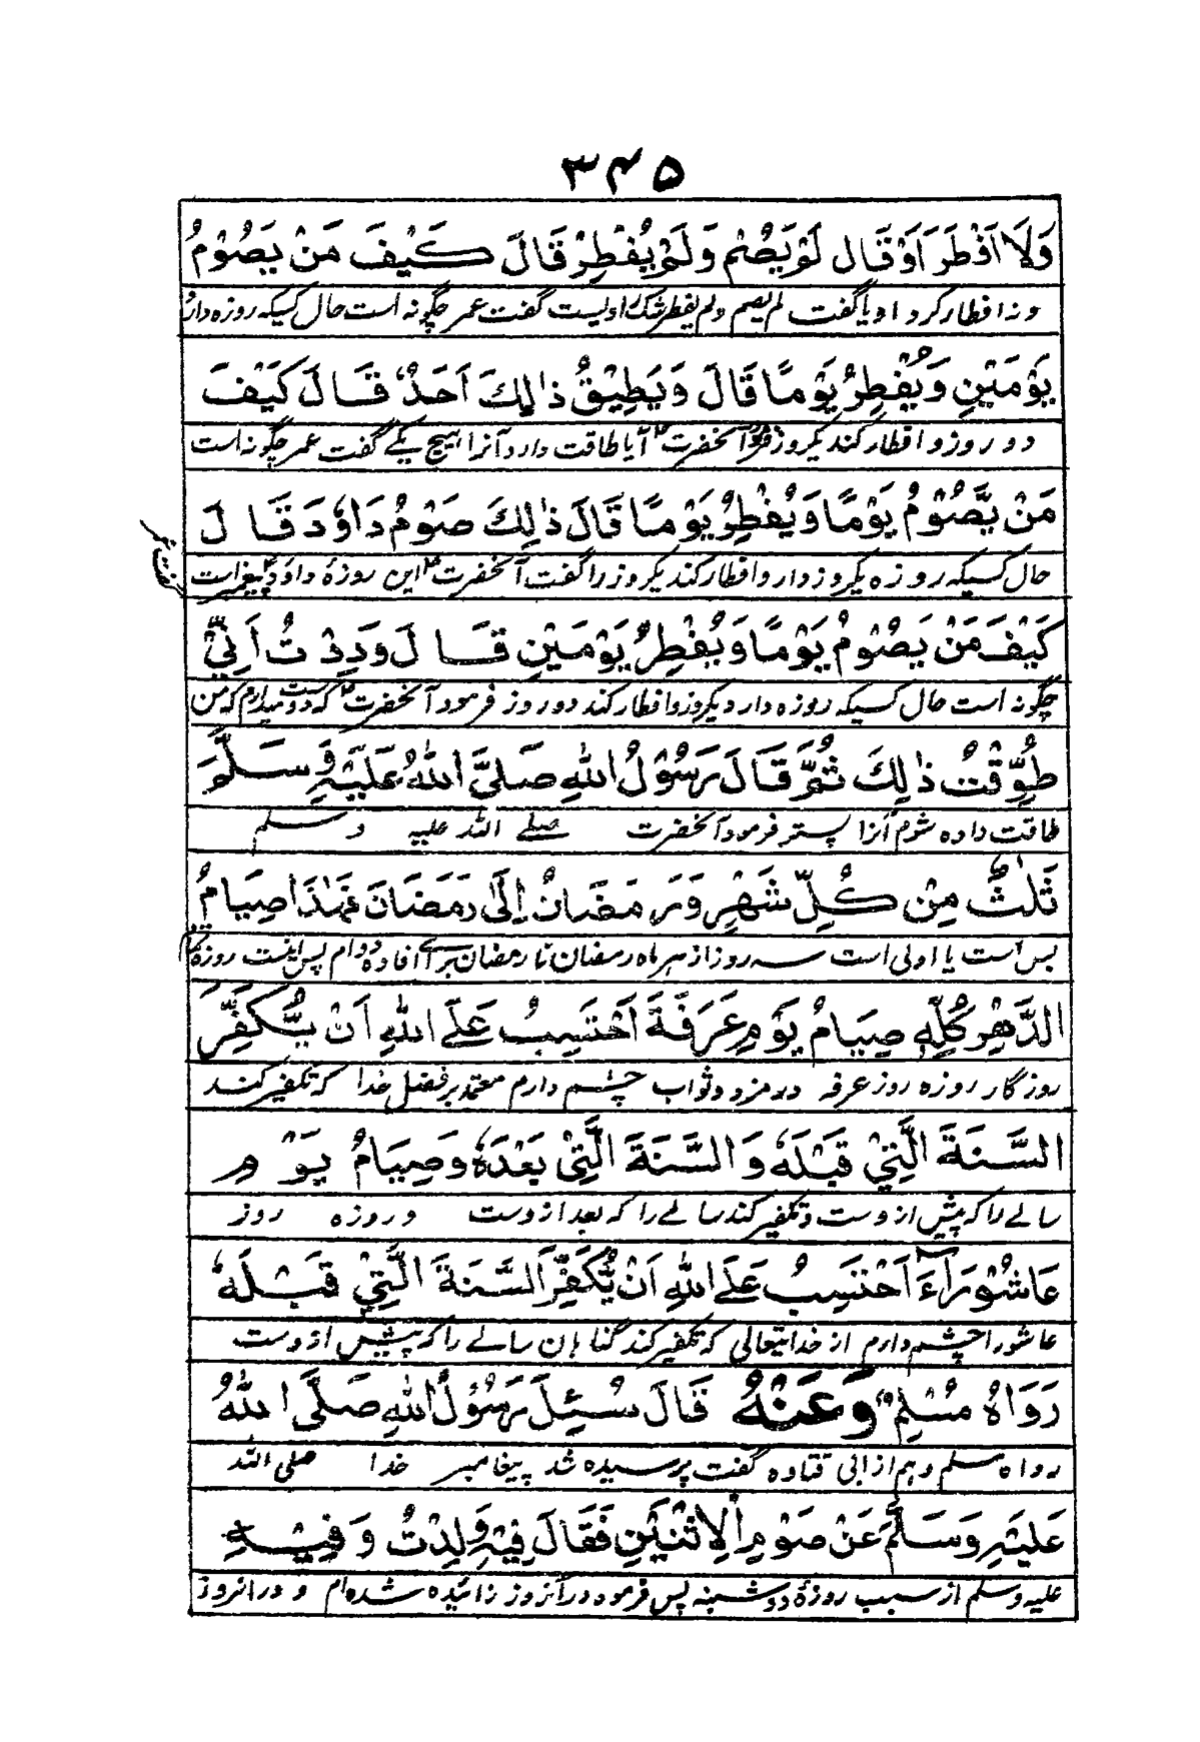 ۳۴۵
وَلَا اَفْطَرَ اَوْ قَالَ لَمْ يَصُمْ وَلَمْ يُفْطِرْ قَالَ كَيْفَ مَنْ يَصُوْمُ
و نه افطار کرد او یا گفت لم یصم ولم یفطر شک راویست گفت عمر چگونه است حال کسیکه روزه دارد
يَوْمَيْنِ وَيُفْطِرُ يَوْمًا قَالَ وَيَطِيْقُ ذٰلِكَ اَحَدٌ قَالَ كَيْفَ
دو روز و افطار کند یکروز آنحضرت آیا طاقت دارد آنرا هیچ یکے گفت عمر چگونه است
مَنْ يَّصُوْمُ يَوْمًا وَيُفْطِرُ يَوْمًا قَالَ ذٰلِكَ صَوْمُ دَاوٗدَ قَالَ
حال کسیکه روزه یکروز دارد و افطار کند یکروز را گفت آنحضرت این روزهٔ داؤد پیغمبر است
كَيْفَ مَنْ يَصُوْمُ يَوْمًا وَيُفْطِرُ يَوْمَيْنِ قَالَ وَدِدْتُ اَنِّيْ
چگونه است حال کسیکه روزه دارد یکروز و افطار کند دو روز فرمود آنحضرت که دوست میدارم که من
طُوِّقْتُ ذٰلِكَ ثُمَّ قَالَ رَسُوْلُ اللهِ صَلَّى اللهُ عَلَيْهِ وَسَلَّمَ
طاقت داده شوم آنرا پستر فرمود آنحضرت صلے الله علیه وسلم
ثَلٰثٌ مِنْ كُلِّ شَهْرٍ وَرَمَضَانُ اِلٰى رَمَضَانَ فَهٰذَا صِيَامُ
بس است یا اولی است سه روز از هر ماه رمضان تا رمضان برائے افاده دوام پس اینست روزه
الدَّهْرِ كُلِّهٖ صِيَامُ يَوْمِ عَرَفَةَ اَحْتَسِبُ عَلَى اللهِ اَنْ يُّكَفِّرَ
روزگار روزه روز عرفه مزد و ثواب چشم دارم معتمد بر فضل خدا که تکفیر کند
السَّنَةَ الَّتِيْ قَبْلَهٗ وَالسَّنَةَ الَّتِيْ بَعْدَهٗ وَصِيَامُ يَوْمِ
سالے را که پیش از وست و تکفیر کند سالے را که بعد از وست و روزه روز
عَاشُوْرَاءَ اَحْتَسِبُ عَلَى اللهِ اَنْ يُّكَفِّرَ السَّنَةَ الَّتِيْ قَبْلَهٗ
عاشورا چشم دارم از خدا تعالی که تکفیر کند گناهان سالے را که پیش از وست
رَوَاهُ مُسْلِمٌ وَعَنْهُ قَالَ سُئِلَ رَسُوْلُ اللهِ صَلَّى اللهُ
رواه مسلم و هم از ابی قتاده گفت پرسیده شد پیغامبر خدا صلی الله
عَلَيْهِ وَسَلَّمَ عَنْ صَوْمِ الْاِثْنَيْنِ فَقَالَ فِيْهِ وُلِدْتُ وَفِيْهِ
علیه وسلم از سبب روزهٔ دوشنبه پس فرمود در آنروز زائیده شده ام و در انروز